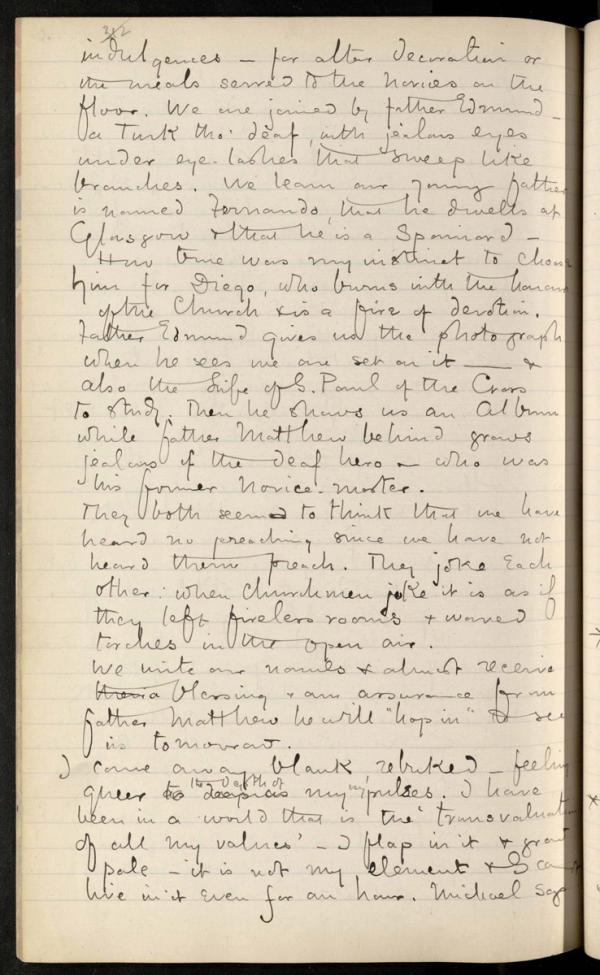 312
indulgences — for altar decoration or
the meals served to the Novices on the
floor. We are joined by father Edmund —
a Turk tho' deaf, with jealous eyes
under eye-lashes that sweep like
branches. We learn our young father
is named Fernando, that he dwells at
Glasgow & that he is a Spaniard —
How true was my instinct to choose
him for Diego, who burns with the honour
of the Church & is a fire of devotion.
Father Edmund gives us the photograph
when he sees we are set on it — &
also the Life of S. Paul of the Cross
to study. Then he shows us an Album
while father Matthew behind grows
jealous of the deaf hero — who was
his former Novice-master.
They both seemed to think that we have
heard no preaching since we have not
heard them preach. They joke each
other: when Churchmen joke it is as if
they left fireless rooms & waved
torches in the open air.
We write our names & almost receive
a blessing & an assurance from
father Matthew he will "hop in" to see
us tomorrow.
I come away blank, rebuked — feeling
queer to the depth of my impulses. I have
been in a world that is the 'transvaluation
of all my values' — I flap in it & grow
pale — it is not my element & I can't
live in it even for an hour. Michael says